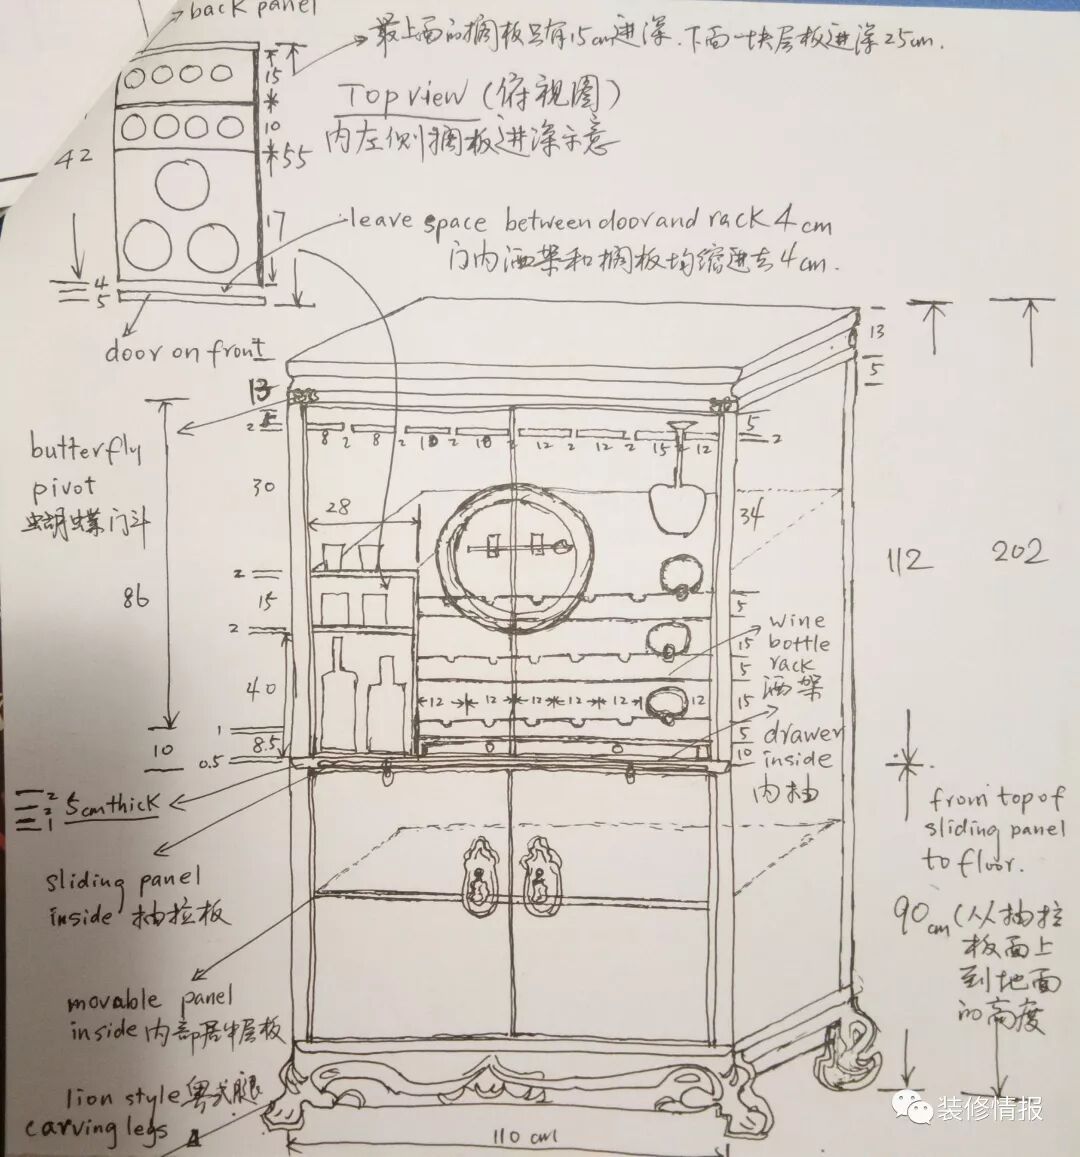 back panel
最上面的搁板只有15cm进深.下面一块层板进深25cm.
Top view (俯视图)
内左侧搁板进深示意
15
10
55
42
17
4
5
leave space between door and rack 4cm
门内酒架和搁板均缩进去4cm.
door on front
13
5
13
5
2
8 2 8 2 10 2 10 2 12 2 12 2 15 2 12
5
2
butterfly
pivot
蝴蝶门斗
30
28
34
112
202
86
2
15
2
40
5
15
5
15
5
10
wine
bottle
rack
酒架
12 12 12 12 12 12
10
1
8.5
0.5
drawer
inside
内抽
2
2
1
5cm thick
from top of
sliding panel
to floor.
90cm (从抽拉
板面上
到地面
的高度
sliding panel
inside 抽拉板
movable panel
inside 内部居中层板
lion style 粤式腿
carving legs
110 cm
装修情报